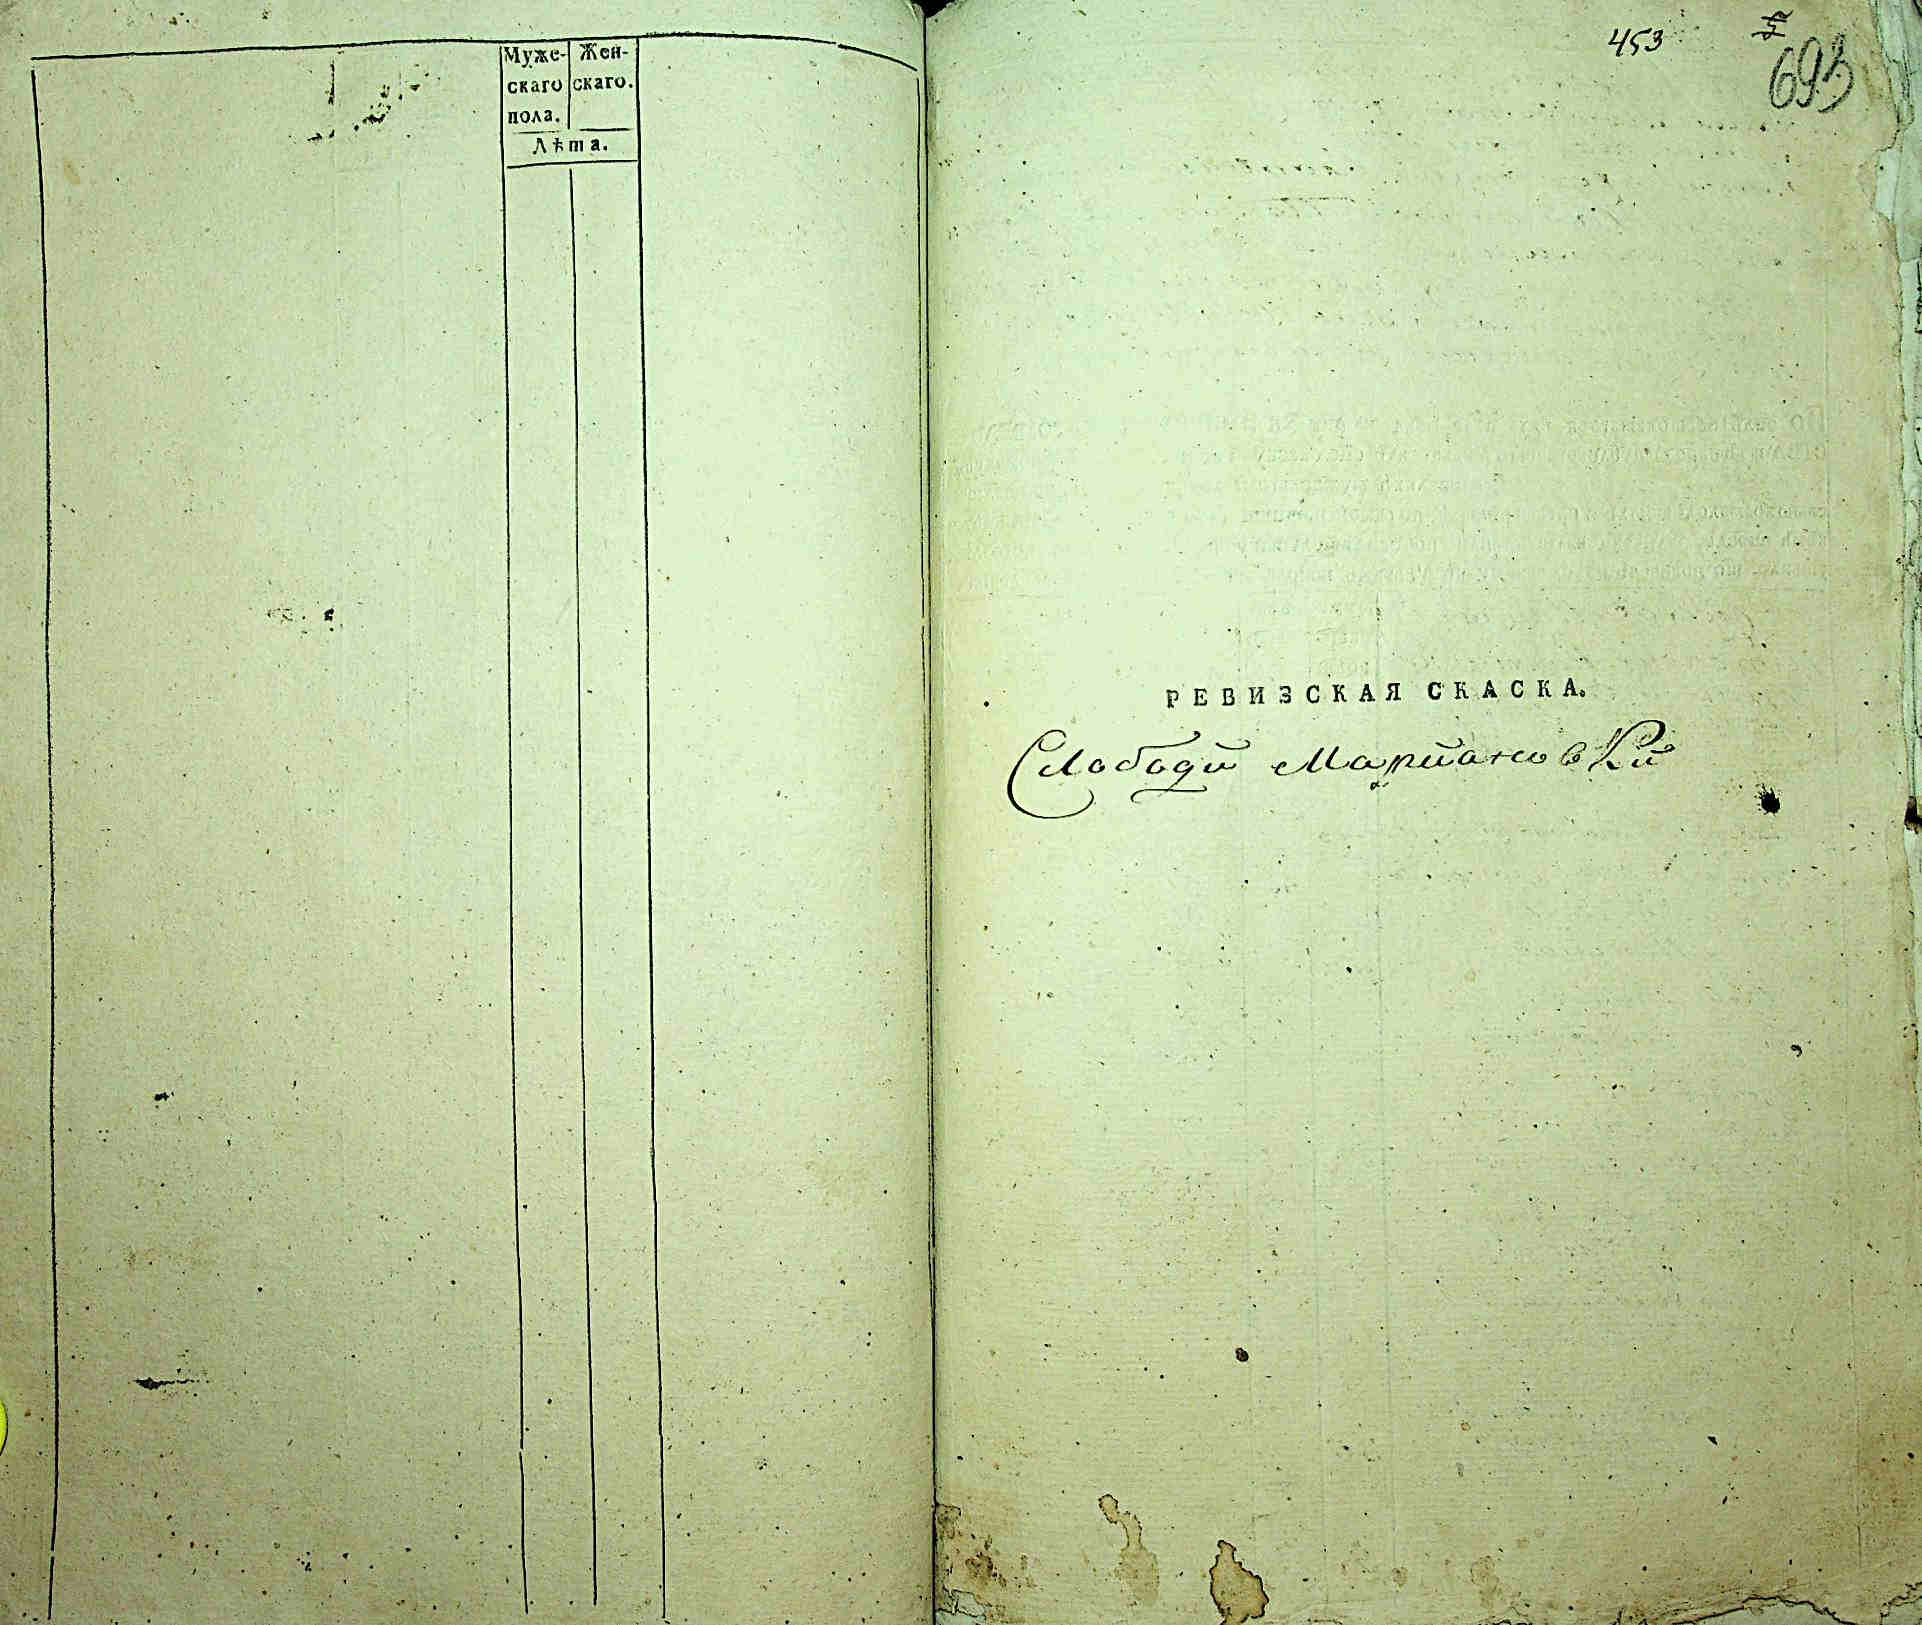 Муже-
скаго
пола.
Жен-
скаго.
Лѣта.
453
693
РЕВИЗСКАЯ СКАСКА.
Слободи Марйановки